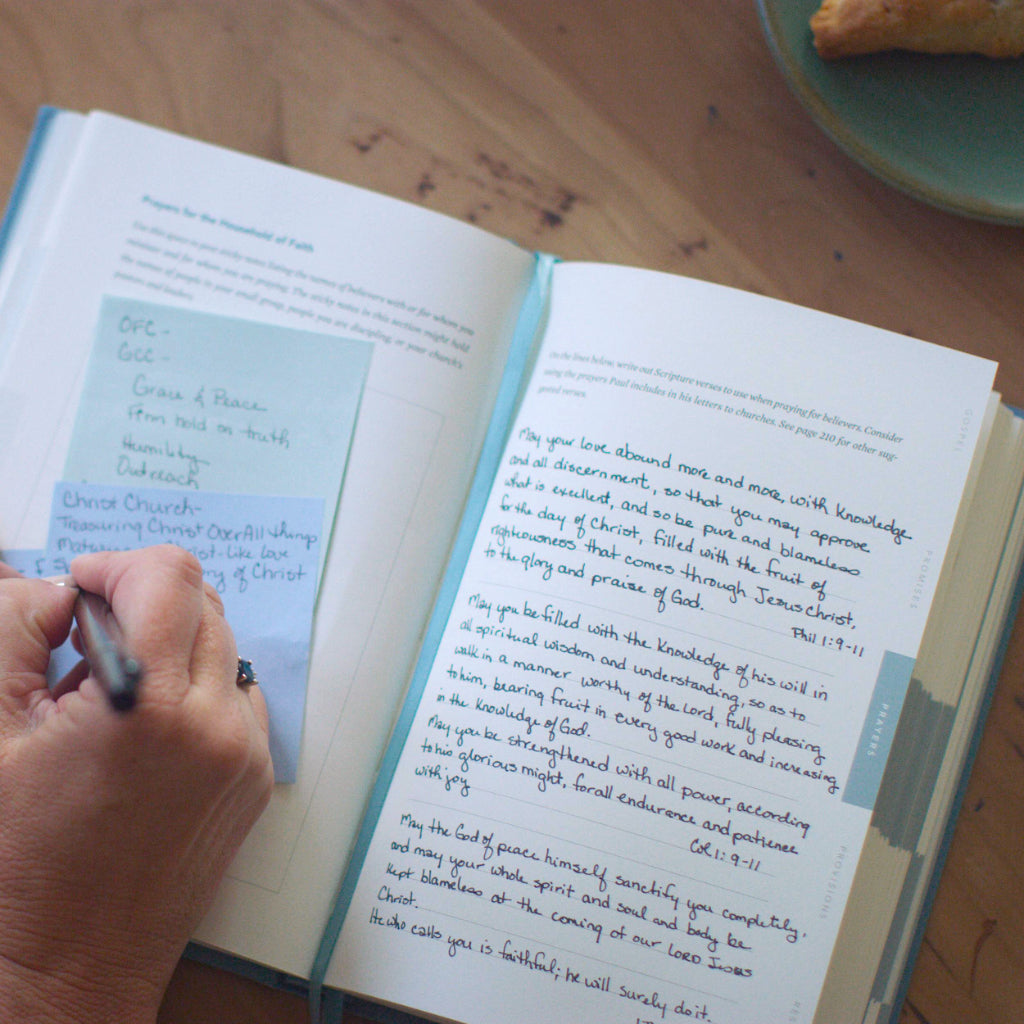 Prayers for the Household of Faith
Use this space to put sticky notes listing the names of believers with or for whom you
minister and for whom you are praying. The sticky notes in this section might hold
the names of people in your small group, people you are discipling, or your church's
pastors and leaders.
OFC -
GCC -
Grace & Peace
Firm hold on truth
Humility
Outreach
Christ Church-
Treasuring Christ Over All things
Christ-like love
of Christ
On the lines below, write out Scripture verses to use when praying for believers. Consider
using the prayers Paul includes in his letters to churches. See page 210 for other sug-
gested verses.
May your love abound more and more, with knowledge
and all discernment, so that you may approve
what is excellent, and so be pure and blameless
for the day of Christ, filled with the fruit of
righteousness that comes through Jesus Christ,
to the glory and praise of God.
Phil 1:9-11
May you be filled with the knowledge of his will in
all spiritual wisdom and understanding, so as to
walk in a manner worthy of the Lord, fully pleasing
to him, bearing fruit in every good work and increasing
in the knowledge of God.
May you be strengthened with all power, according
to his glorious might, for all endurance and patience
with joy
Col 1:9-11
May the God of peace himself sanctify you completely,
and may your whole spirit and soul and body be
kept blameless at the coming of our LORD Jesus
Christ.
He who calls you is faithful; he will surely do it.
GOSPEL
PROMISES
PRAYERS
PROVISIONS
RES